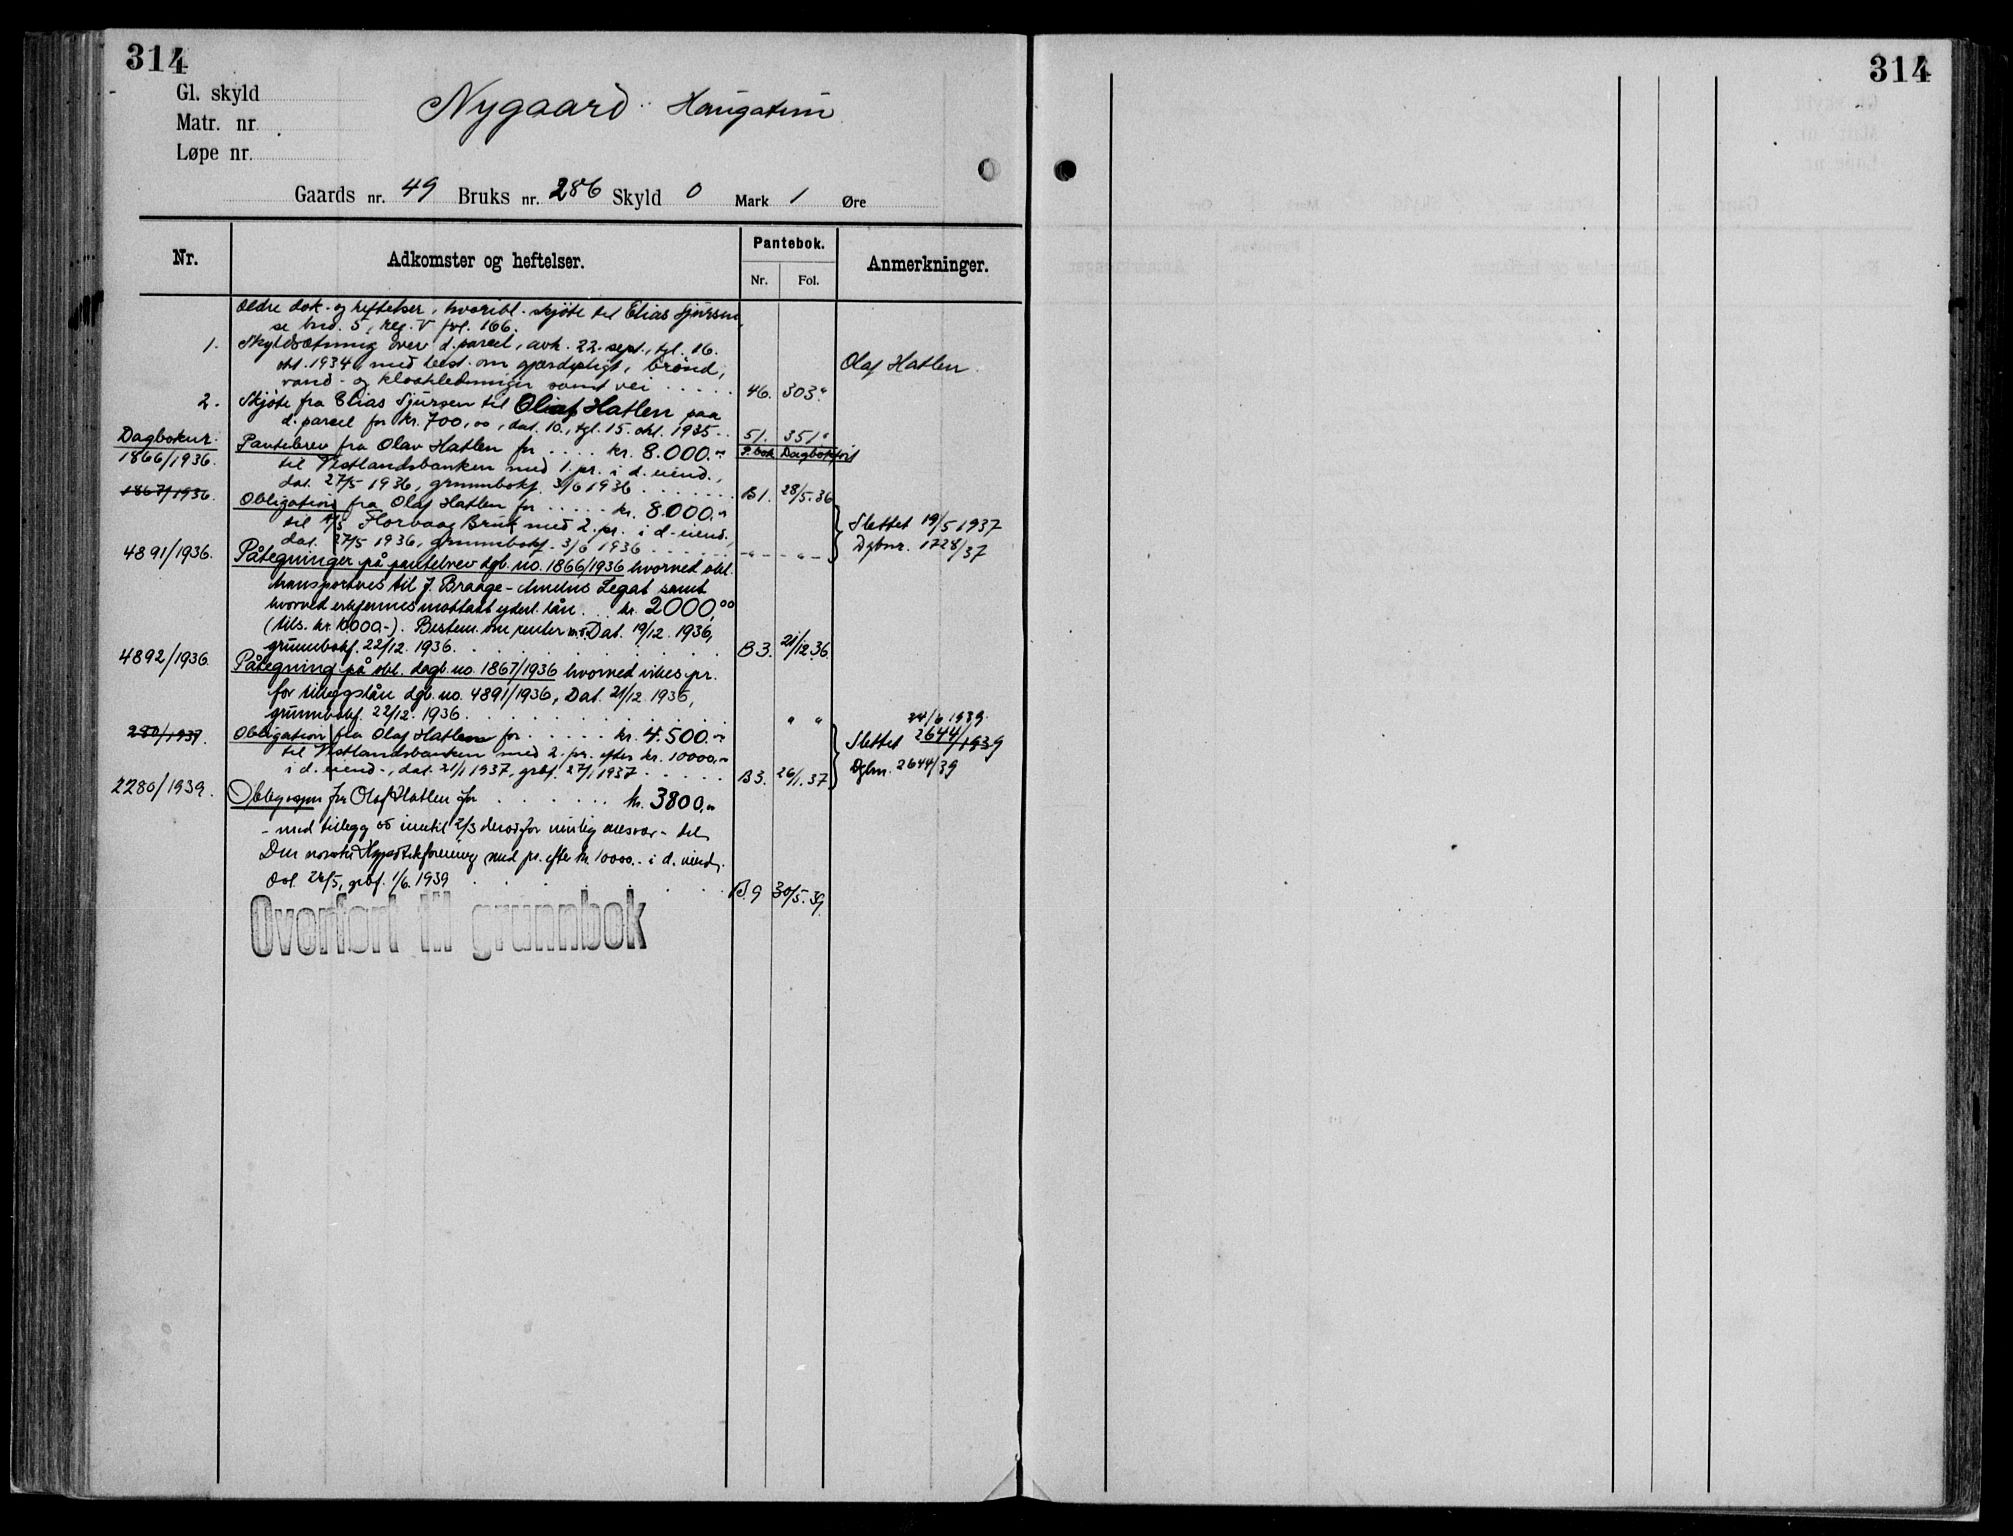 314
314
Gl. skyld
Matr. nr.
Løpe nr.
Nygaard Haugatun
Gaards nr. 49 Bruks nr. 286 Skyld 0 Mark 1 Øre
Nr. Adkomster og heftelser. Pantebok. Anmerkninger.
Nr. Fol.
Ældre dok. og heftelser, hvoribl. skjöte til Elias Sjursen
se bnr. 5, reg. V fol. 166.
1. Skyldsætning over d. parcel, avh. 22. sept., tgl. 16.
okt. 1934, med best. om gjerdepligt, brönd,
vand- og kloakledninger samt vei ..... 46. 303.
Olaf Hatlen.
2. Skjöte fra Elias Sjursen til Olaf Hatlen paa
d. parcel for kr. 700,00, dat. 10., tgl. 15. okt. 1935. 51. 351
Dagboknr. P. bok Dagbokført
1866/1936. Pantebrev fra Olav Hatlen for .... kr. 8.000.-
til Vestlandsbanken med 1. pr. i d. eiend.,
dat. 27/5 1936, grunnbokf. 3/6 1936 ....... B1. 28/5.36
1867/1936. Obligation fra Olaf Hatlen for ..... kr. 8.000.-
til A/S Florvaag Bruk med 2. pr. i d. eiend.,
dat. 27/5 1936, grunnbokf. 3/6 1936 ...... - " - - " -
Slettet 19/5 1937
Dgbnr. 1728/37
4891/1936. Påtegninger på pantebrev dgb. no. 1866/1936 hvorved obl.
transporteres til J. Braage-Amelns Legat samt
hvorved erkjennes mottatt yderl. lån .. kr. 2000,00
(tils. kr. 10.000.-). Bestem. om renter m.v. Dat. 19/12. 1936,
grunnbokf. 22/12. 1936. B3. 21/12.36
4892/1936. Påtegning på obl. dagb. no. 1867/1936 hvorved vikes pr.
for tilleggslån dgb. no. 4891/1936, Dat. 21/12. 1936,
grunnbokf. 22/12. 1936. " "
280/1937. Obligation fra Olaf Hatlen for ..... kr. 4.500.-
til Vestlandsbanken med 2. pr. efter kr. 10000,-
i d. eiend., dat. 21/1 1937, grbf. 27/1 1937 ..... B3. 26/1.37
24/6 1939.
Slettet 2644/1939
Dgbnr. 2644/39
2280/1939. Obligasjon fra Olaf Hatlen for ....... kr. 3800,-
- med tillegg av inntil 2/3 derav for innlig ansvar - til
Den norske Hypotekforening med pr. efter kr. 10000.- i d. eiend.
Dat. 24/5, grbf. 1/6. 1939 B.9 30/5.39.
Overført til grunnbok